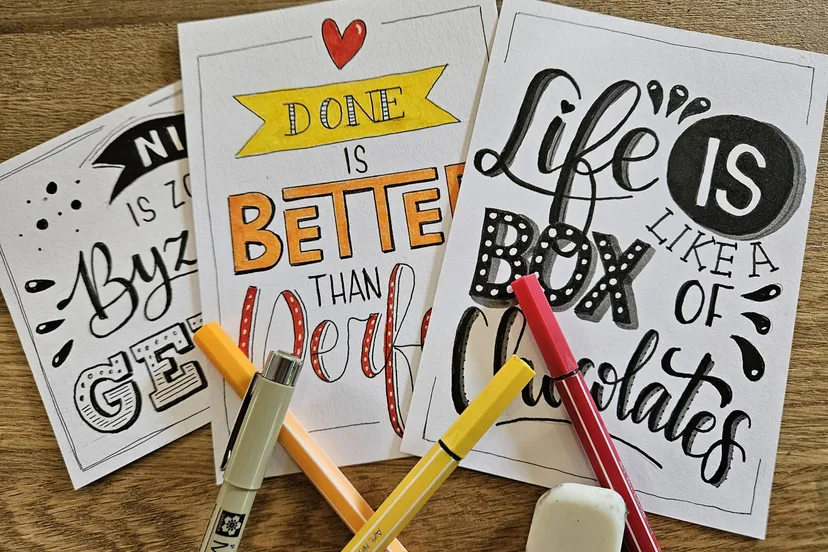 NI
IS ZO
Byz
GE
DONE
IS
BETTER
THAN
Perf
Life IS
LIKE A
BOX OF
Chocolates